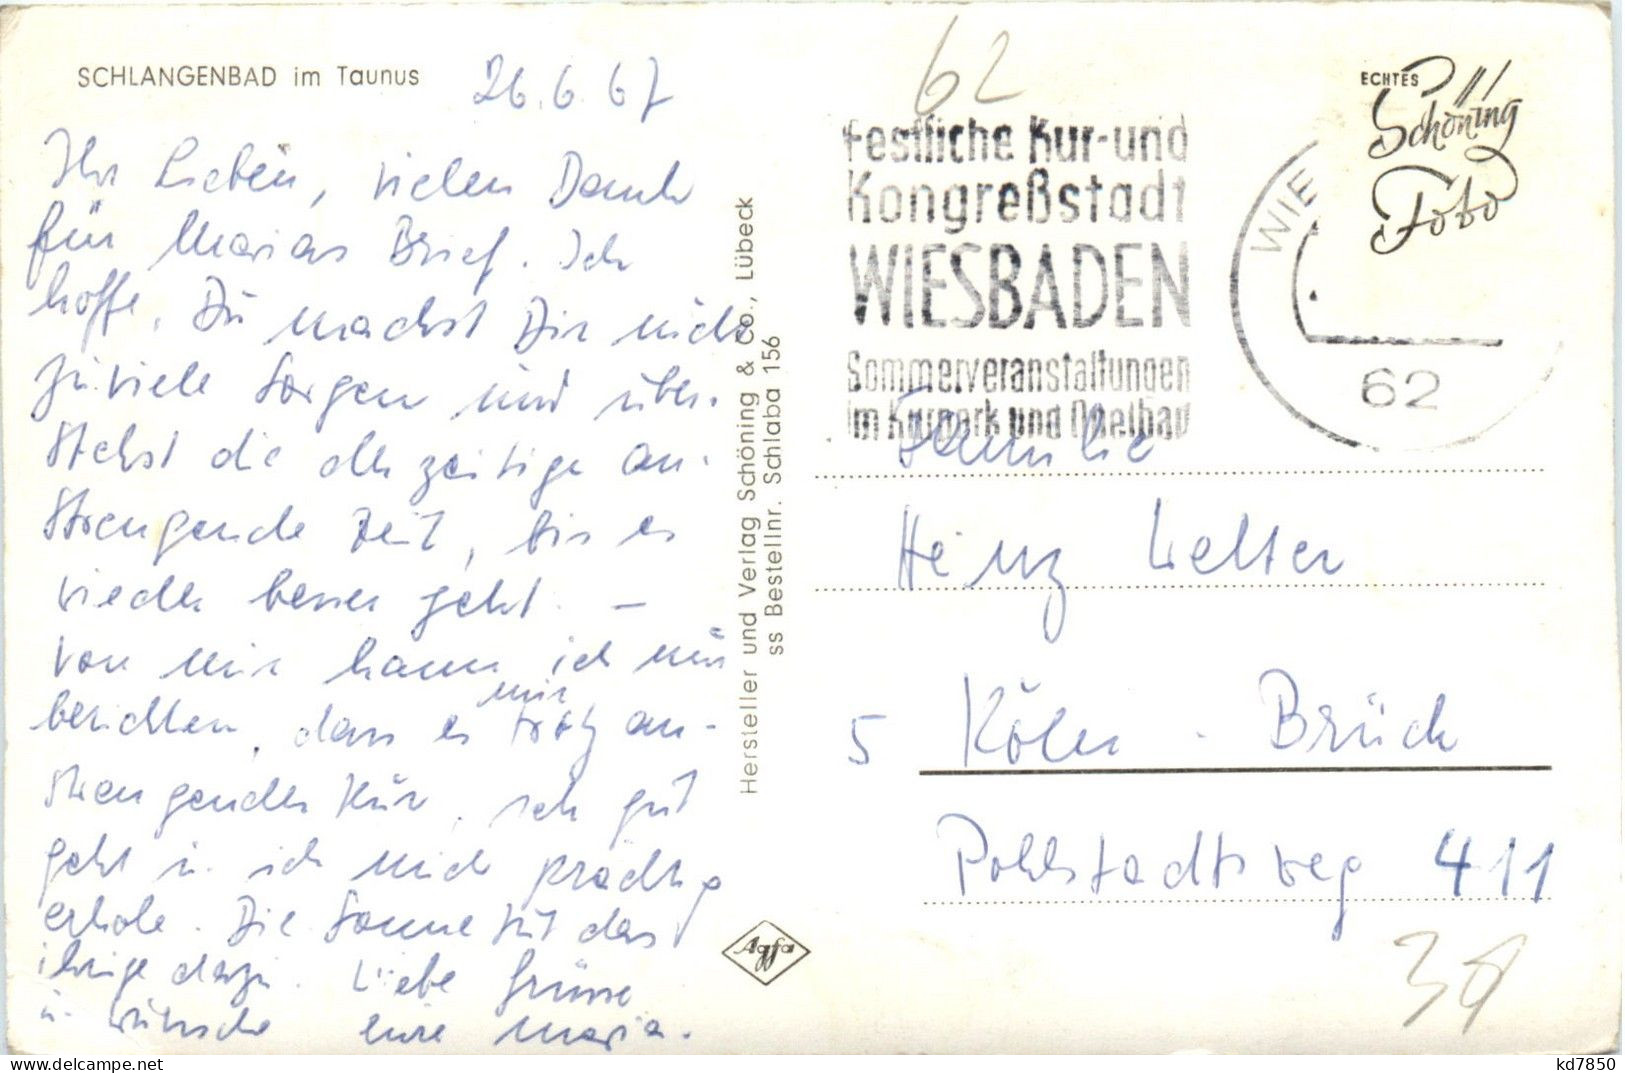 SCHLANGENBAD im Taunus
26.6.67
Ihr Lieben, vielen Dank
für Marias Brief. Ich
hoffe, Du machst Dir nicht
zuviele Sorgen und über-
stehst die derzeitige an-
strengende Zeit, bis es
wieder besser geht. –
Von mir kann ich nur
berichten, dass es mir trotz an-
strengender Kur, sehr gut
geht u. ich mich prächtig
erhole. Die Sonne tut das
ihrige dazu. Liebe Grüsse
u. Wünsche Eure Maria.
Hersteller und Verlag Schöning & Co., Lübeck
ss Bestellnr. Schlaba 156
Agfa
62
Festliche Kur- und
Kongreßstadt
WIESBADEN
Sommerveranstaltungen
im Kurpark und Opelbad
WIE
62
ECHTES
Schöning
Foto
Familie
Heinz Welter
5 Köln - Brück
Pohlstadtsweg 411
kd7850